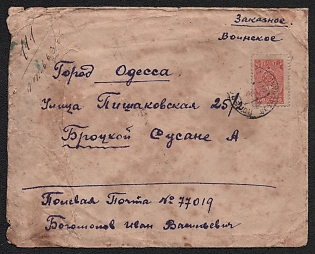 Заказное.
Воинское
Город Одесса.
Улица Пишаковская 25/
Броцкой Сусане А
Полевая Почта № 77019
Богомолов Иван Васильевич